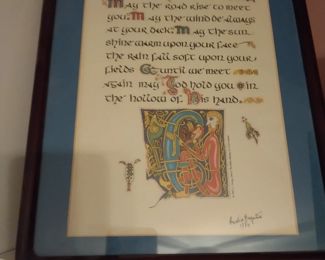 May the road rise to meet
you. May the wind be always
at your back. May the sun
shine warm upon your face
the rain fall soft upon your
fields & until we meet
again may God hold you in
the hollow of His hand.